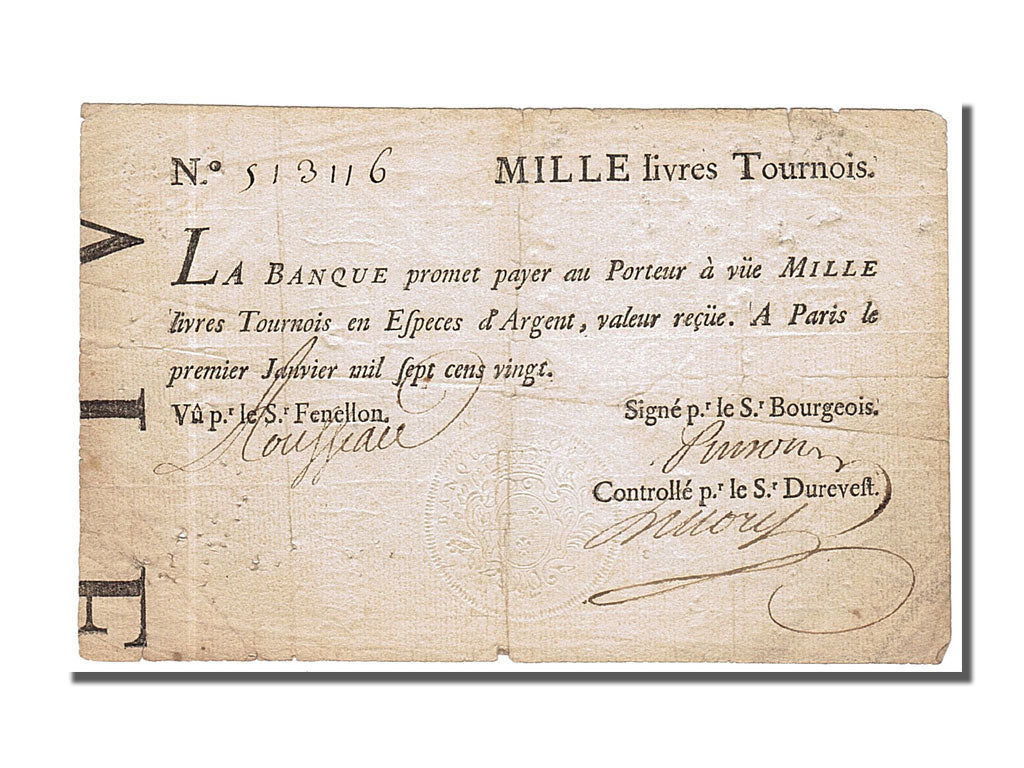 N.º 513116 MILLE livres Tournois.
LA BANQUE promet payer au Porteur à vüe MILLE
livres Tournois en Eſpeces d'Argent, valeur reçüe. A Paris le
premier Janvier mil ſept cens vingt.
Vû p.r le S.r Fenellon. Signé p.r le S.r Bourgeois.
Controllé p.r le S.r Dureveſt.